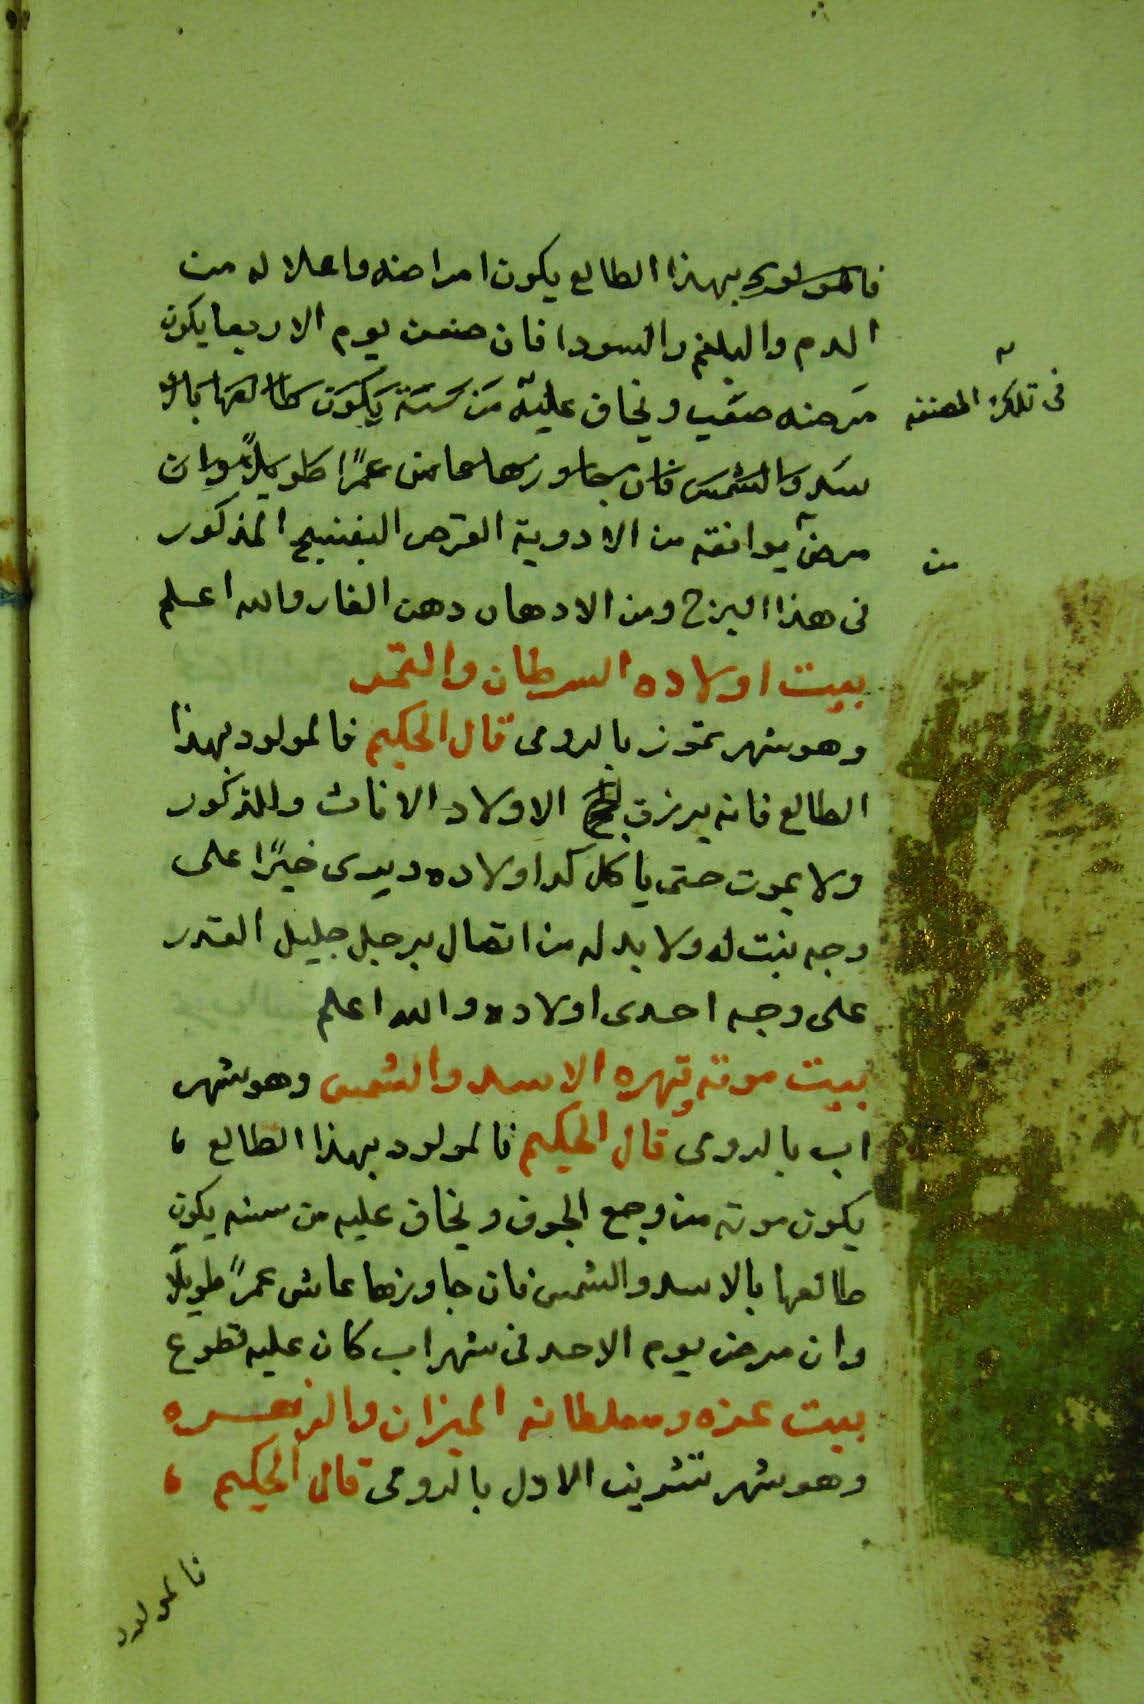 فالمولود بهذا الطالع يكون امراضه واعلاله من
الدم والبلغم والسودا فان ضعف يوم الاربعا يكون
مرضه صعب ويخاف عليه من سنة يكون طالعها بالا
سد والشمس فان جاوزها عاش عمرًا طويلًا وان
مرض يوافقه من الادوية القرص البنفسج المذكور
فى هذا البرج ومن الادهان دهن الغار والله اعلم
بيت اولاده السرطان والقمر
وهو شهر تموز بالرومى قال الحكيم فالمولود بهذا
الطالع فانه يرزق الاولاد الاناث والذكور
ولا يموت حتى ياكل كد اولاده ويرى خيرًا على
وجه بنت له ولا بد له من اتصال برجل جليل القدر
على وجه احدى اولاده والله اعلم
بيت موته وقهره الاسد والشمس وهو شهر
اب بالرومى قال الحكيم فالمولود بهذا الطالع
يكون موته من وجع الجوف ويخاف عليه من سنه يكون
طالعها بالاسد والشمس فان جاوزها عاش عمرًا طويلًا
وان مرض يوم الاحد فى شهر اب كان عليه قطوع
بيت عزه وسلطانه الميزان والزهره
وهو شهر تشرين الاول بالرومى قال الحكيم
فالمولود
فى تلك
من